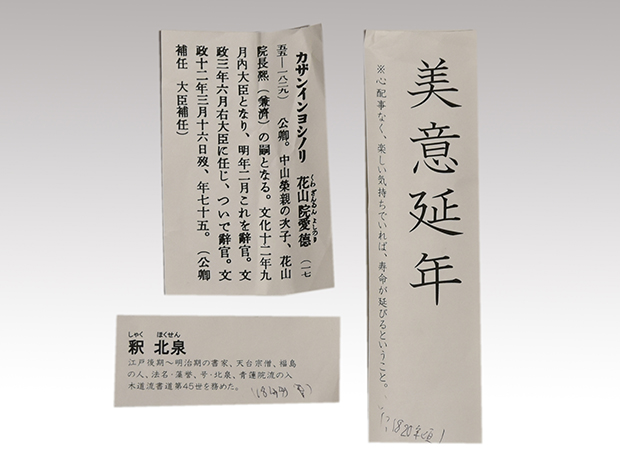 カザンインヨシノリ 花山院愛德 (一七
五五—一八二九) 公卿。中山榮親の次子、花山
院長熙(兼濟)の嗣となる。文化十二年九
月內大臣となり、明年二月これを辭官。文
政三年六月右大臣に任じ、ついで辭官。文
政十二年三月十六日歿、年七十五。(公卿
補任 大臣補任)
美意延年
※心配事なく、楽しい気持ちでいれば、寿命が延びるということ。
1820年頃
しゃく ほくせん
釈 北泉
江戸後期〜明治期の書家、天台宗僧、福島
の人、法名・藻誉、号・北泉、青蓮院流の入
木道流書道第45世を務めた。